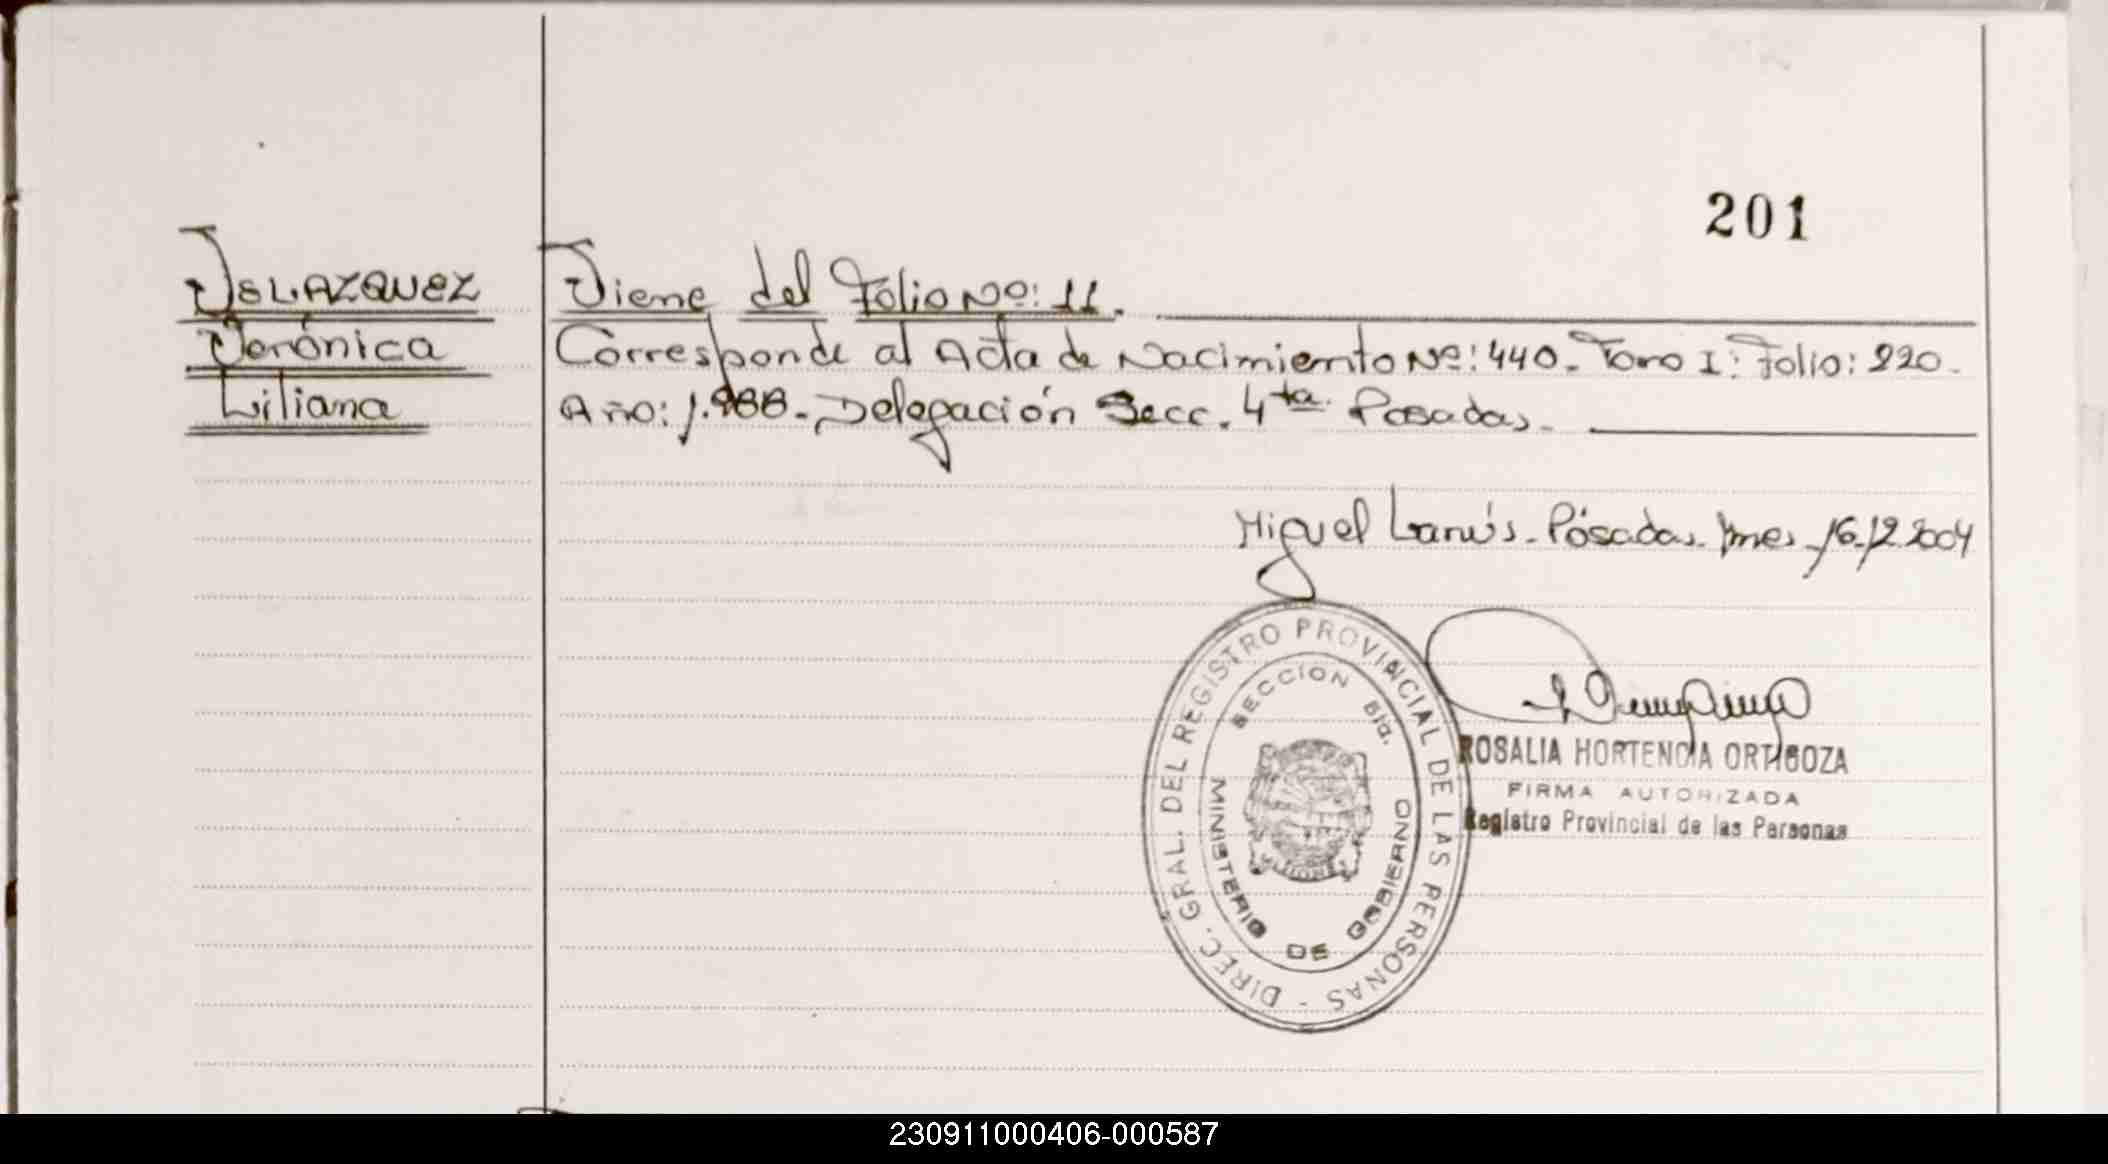 201
VELAZQUEZ
Verónica
Liliana
Viene del Folio Nº: 11.
Corresponde al Acta de Nacimiento Nº: 440. Tomo I: Folio: 220.
Año: 1.988. Delegación Secc. 4ta. Posadas.
Miguel Lanús. Posadas. Mnes. 16.12.2004
DIREC. GRAL. DEL REGISTRO PROVINCIAL DE LAS PERSONAS -
SECCION 8va.
MINISTERIO DE GOBIERNO
ROSALIA HORTENCIA ORTIGOZA
FIRMA AUTORIZADA
Registro Provincial de las Personas
230911000406-000587